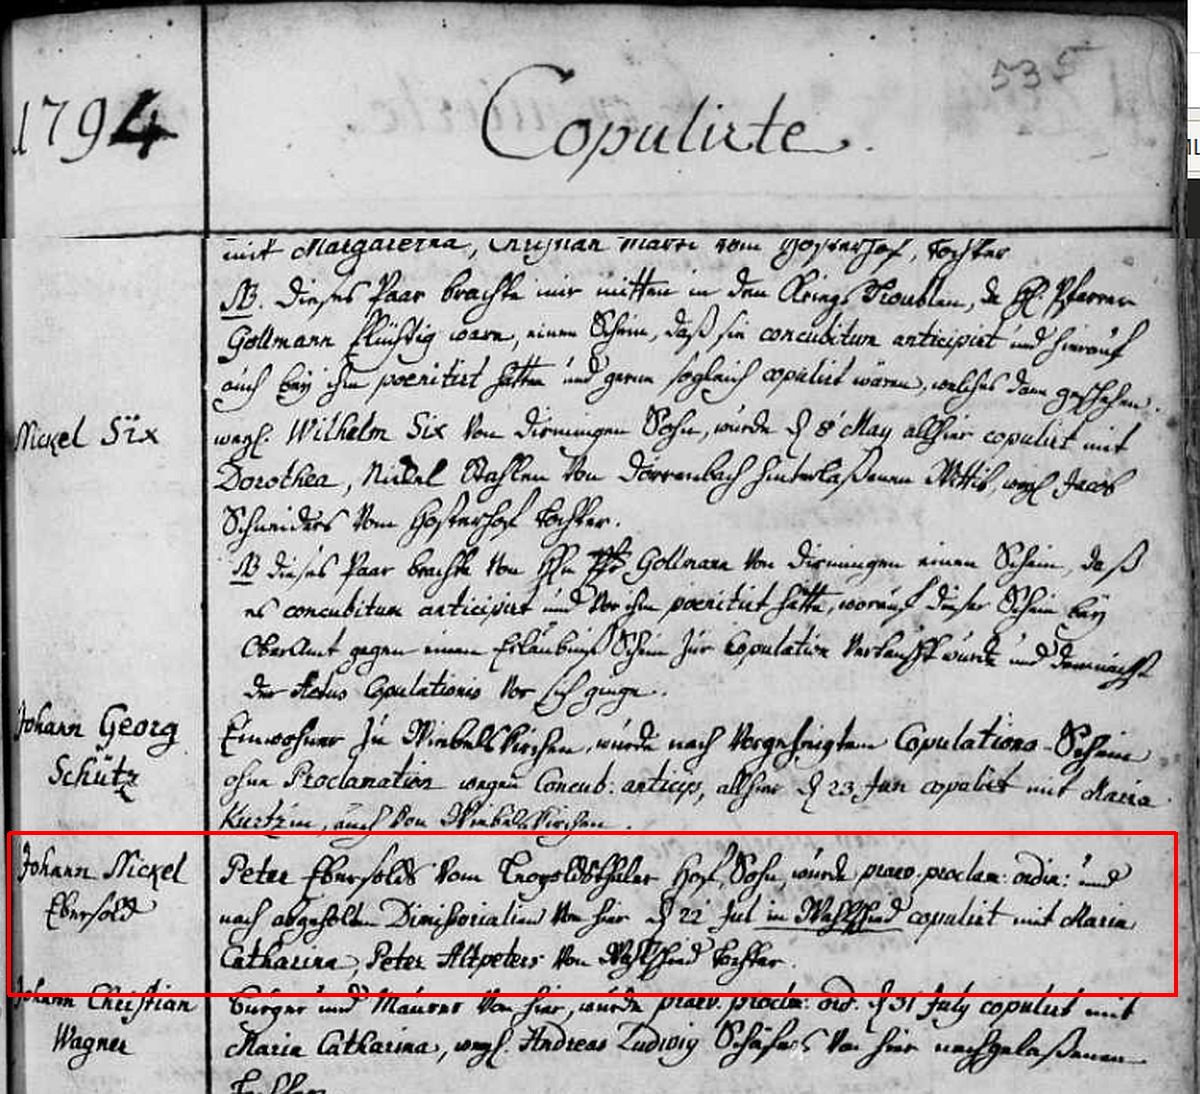 535
1794 Copulirte.
mit Margaretha, Christian Marx vom Hosterhof, Tochter
NB. dieses Paar brachte mir mitten in den Kriegs Troublen, da H. Pfarrer
Gollmann flüchtig ware, einen Schein, daß sie concubitum anticipirt und hierauf
auch bey ihm poenitirt hätten und gerne sogleich copulirt wären, welches dann geschehen.
Nickel Six
weyl. Wilhelm Six von Dirmingen Sohn, wurde d 8t May allhier copulirt mit
Dorothea, Nickel Stahlen von Dörrenbach hinterlaßenen Wittib, weyl Jacob
Schneiders vom Hosterhof Tochter.
NB dieses Paar brachte von Hrn Pfr Gollmann von Dirmingen einen Schein, daß
es concubitum anticipirt und vor ihm poenitirt hätte, worauf dieser Schein bey
Oberamt gegen einen Erlaubniß Schein zur Copulation vertauscht wurde und demnächst
der Actus Copulationis vor sich ginge.
Johann Georg
Schütz
Einwohner zu Wiebelskirchen, wurde nach vorgezeigtem Copulations-Schein
ohne Proclamation wegen Concub: anticip, allhier d 23 Jun copulirt mit Maria
Kurtzin, auch von Wiebelskirchen.
Johann Nickel
Ebersold
Peter Ebersolds vom Leopoldsthaler Hof, Sohn, wurde praev. proclam: ordin: und
nach abgeholten Dimissorialien von hier d 22t Jul in Wahlschied copulirt mit Maria
Catharina, Peter Altpeters von Wahlschied Tochter.
Johann Christian
Wagner
Burger und Maurer von hier, wurde praev. proclm: ord. d 31 July copulirt mit
Maria Catharina, weyl. Andreas Ludwig Schäfers von hier nachgelaßenen
Tochter